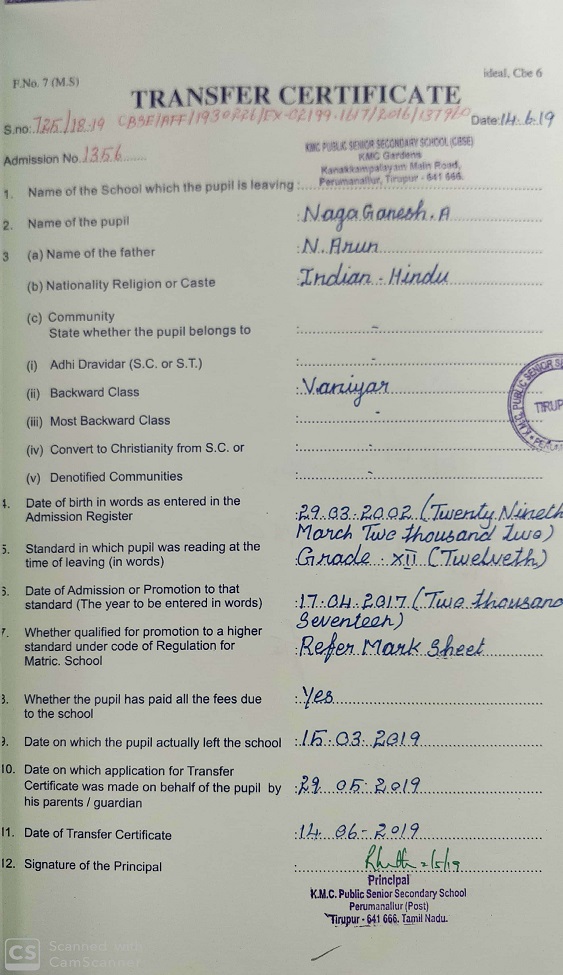 F.No. 7 (M.S)
ideal, Cbe 6
TRANSFER CERTIFICATE
S.no: 725/18-19 CBSE/AFF/1930226/EX-02199-1617/2016/137960 Date: 14.6.19
Admission No. 1356
KMC PUBLIC SENIOR SECONDARY SCHOOL (CBSE)
KMC Gardens
Kanakkampalayam Main Road,
Perumanallur, Tirupur - 641 666.
1. Name of the School which the pupil is leaving :
2. Name of the pupil : Naga Ganesh. A
3 (a) Name of the father : N. Arun
(b) Nationality Religion or Caste : Indian - Hindu
(c) Community
State whether the pupil belongs to : -
(i) Adhi Dravidar (S.C. or S.T.) : -
(ii) Backward Class : Vaniyar
(iii) Most Backward Class : -
(iv) Convert to Christianity from S.C. or : -
(v) Denotified Communities : -
K.M.C. PUBLIC SENIOR
TIRUP
4. Date of birth in words as entered in the : 29.03.2002 (Twenty Nineth
Admission Register March Two thousand two)
5. Standard in which pupil was reading at the : Grade - XII (Twelveth)
time of leaving (in words)
Date of Admission or Promotion to that
standard (The year to be entered in words) : 17.04.2017 (Two thousand
Seventeen)
7. Whether qualified for promotion to a higher : Refer Mark Sheet
standard under code of Regulation for
Matric. School
Whether the pupil has paid all the fees due : Yes
to the school
9. Date on which the pupil actually left the school : 15.03.2019
10. Date on which application for Transfer
Certificate was made on behalf of the pupil by : 29.05.2019
his parents / guardian
11. Date of Transfer Certificate : 14.06-2019
12. Signature of the Principal :
Principal
K.M.C. Public Senior Secondary School
Perumanallur (Post)
Tirupur - 641 666. Tamil Nadu.
CS Scanned with
CamScanner